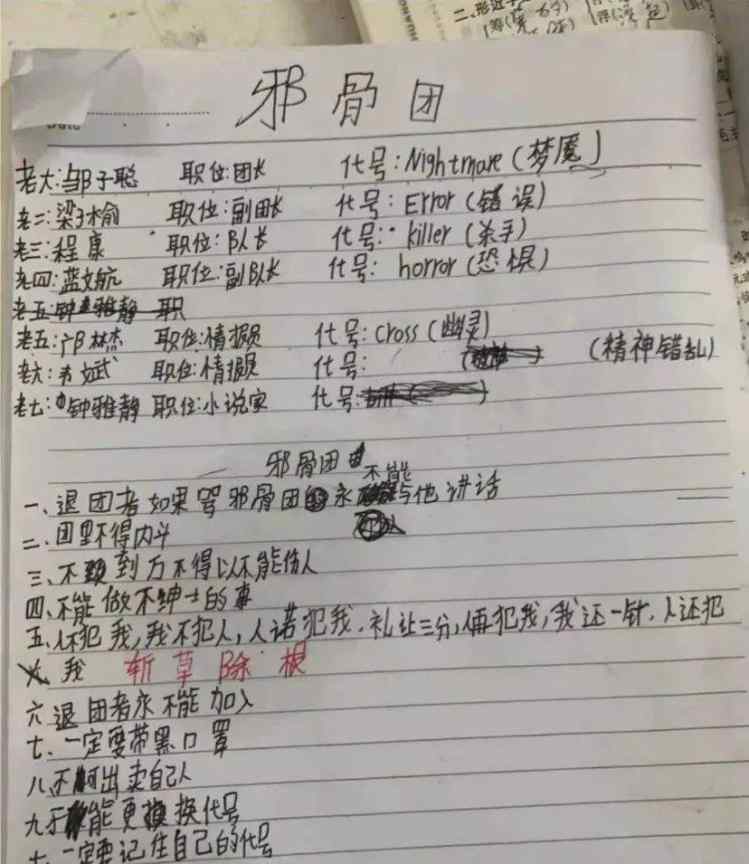 二、形近字
邪骨团
老大:邹子聪 职位:团长 代号:Nightmare(梦魇)
老二:梁子榆 职位:副团长 代号:Error(错误)
老三:程康 职位:队长 代号:killer(杀手)
老四:蓝文航 职位:副队长 代号:horror(恐惧)
老五:钟雅静 职
老五:邝林杰 职位:情报员 代号:cross(幽灵)
老六:韦斌武 职位:情报员 代号: (精神错乱)
老七:钟雅静 职位:小说家 代号:
邪骨团
一、退团者如果骂邪骨团永不能与他讲话
二、团里不得内斗
三、不到万不得以不能伤人
四、不能做不绅士的事
五、人不犯我,我不犯人,人诺犯我,礼让三分,人再犯我,我还一针,人还犯
我 斩草除根
六、退团者永不能加入
七、一定要带黑口罩
八、不可出卖自己人
九、不能更换代号
十、一定要记住自己的代号